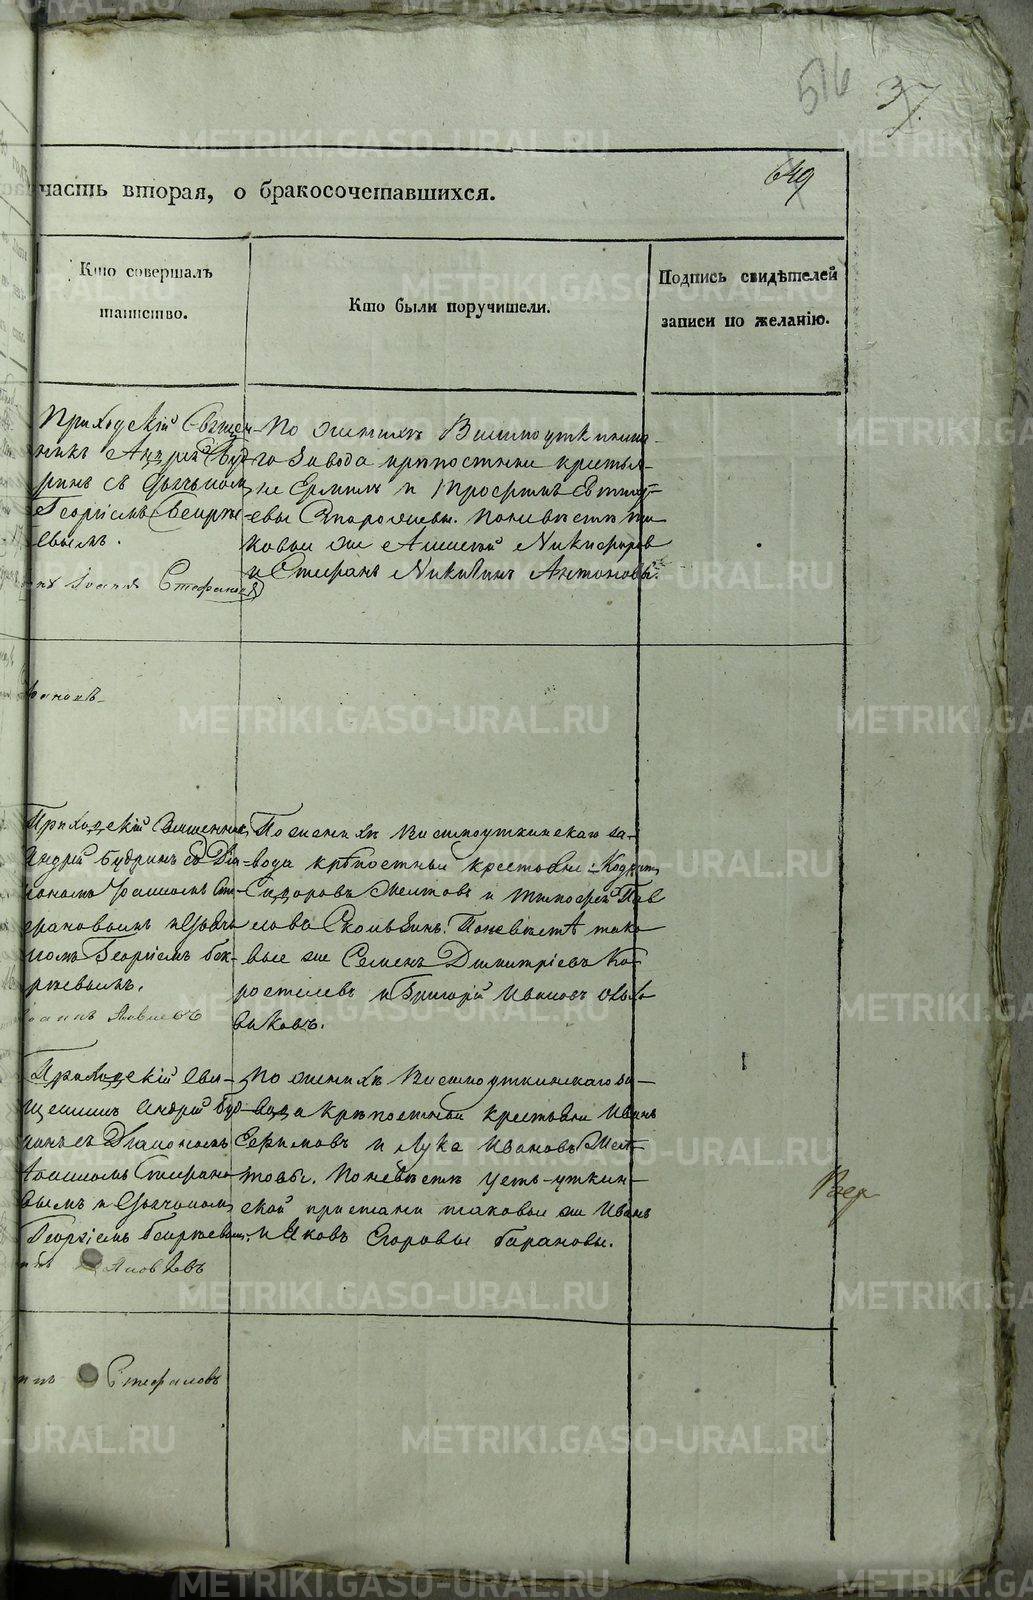 516
37.
649
часть вторая, о бракосочетавшихся.
Кто совершалъ
таинство.
Кто были поручители.
Подпись свидѣтелей
записи по желанію.
Приходскій Священ-
никъ Андрей Буд-
ринъ съ Дьячкомъ
Георгіемъ
Іоаннъ Стефановъ
По женихѣ Висимоуткинска-
го Завода крѣпостные крестья-
не Ермилъ и Трофимъ
По невѣстѣ та-
ковые же Алексѣй Никифоровъ
и Стефанъ Никитинъ Антоновы.
Приходскій Священникъ
Андрей Будринъ съ Діа-
кономъ Іоанномъ Сте-
фановымъ и Дьяч-
комъ Георгіемъ
Іоаннъ Яковлевъ
По женихѣ Висимоуткинскаго за-
вода крѣпостные крестьяне:
Сидоровъ Желтовъ и Тимофей Пав-
ловъ По невѣстѣ тако-
вые же Семенъ Димитріевъ Ко-
ростелевъ и Григорій Ивановъ
Приходскій Свя-
щенникъ Андрей Буд-
ринъ съ Діакономъ
Іоанномъ Стефано-
вымъ и Дьячкомъ
Георгіемъ
Яковлевъ
По женихѣ Висимоуткинскаго за-
вода крѣпостные крестьяне Иванъ
Ефимовъ и Лука Ивановъ Жел-
товы. По невѣстѣ Усть-уткин-
ской пристани таковые же Иванъ
и Яковъ Егоровы Барановы.
Стефановъ
METRIKI.GASO-URAL.RU